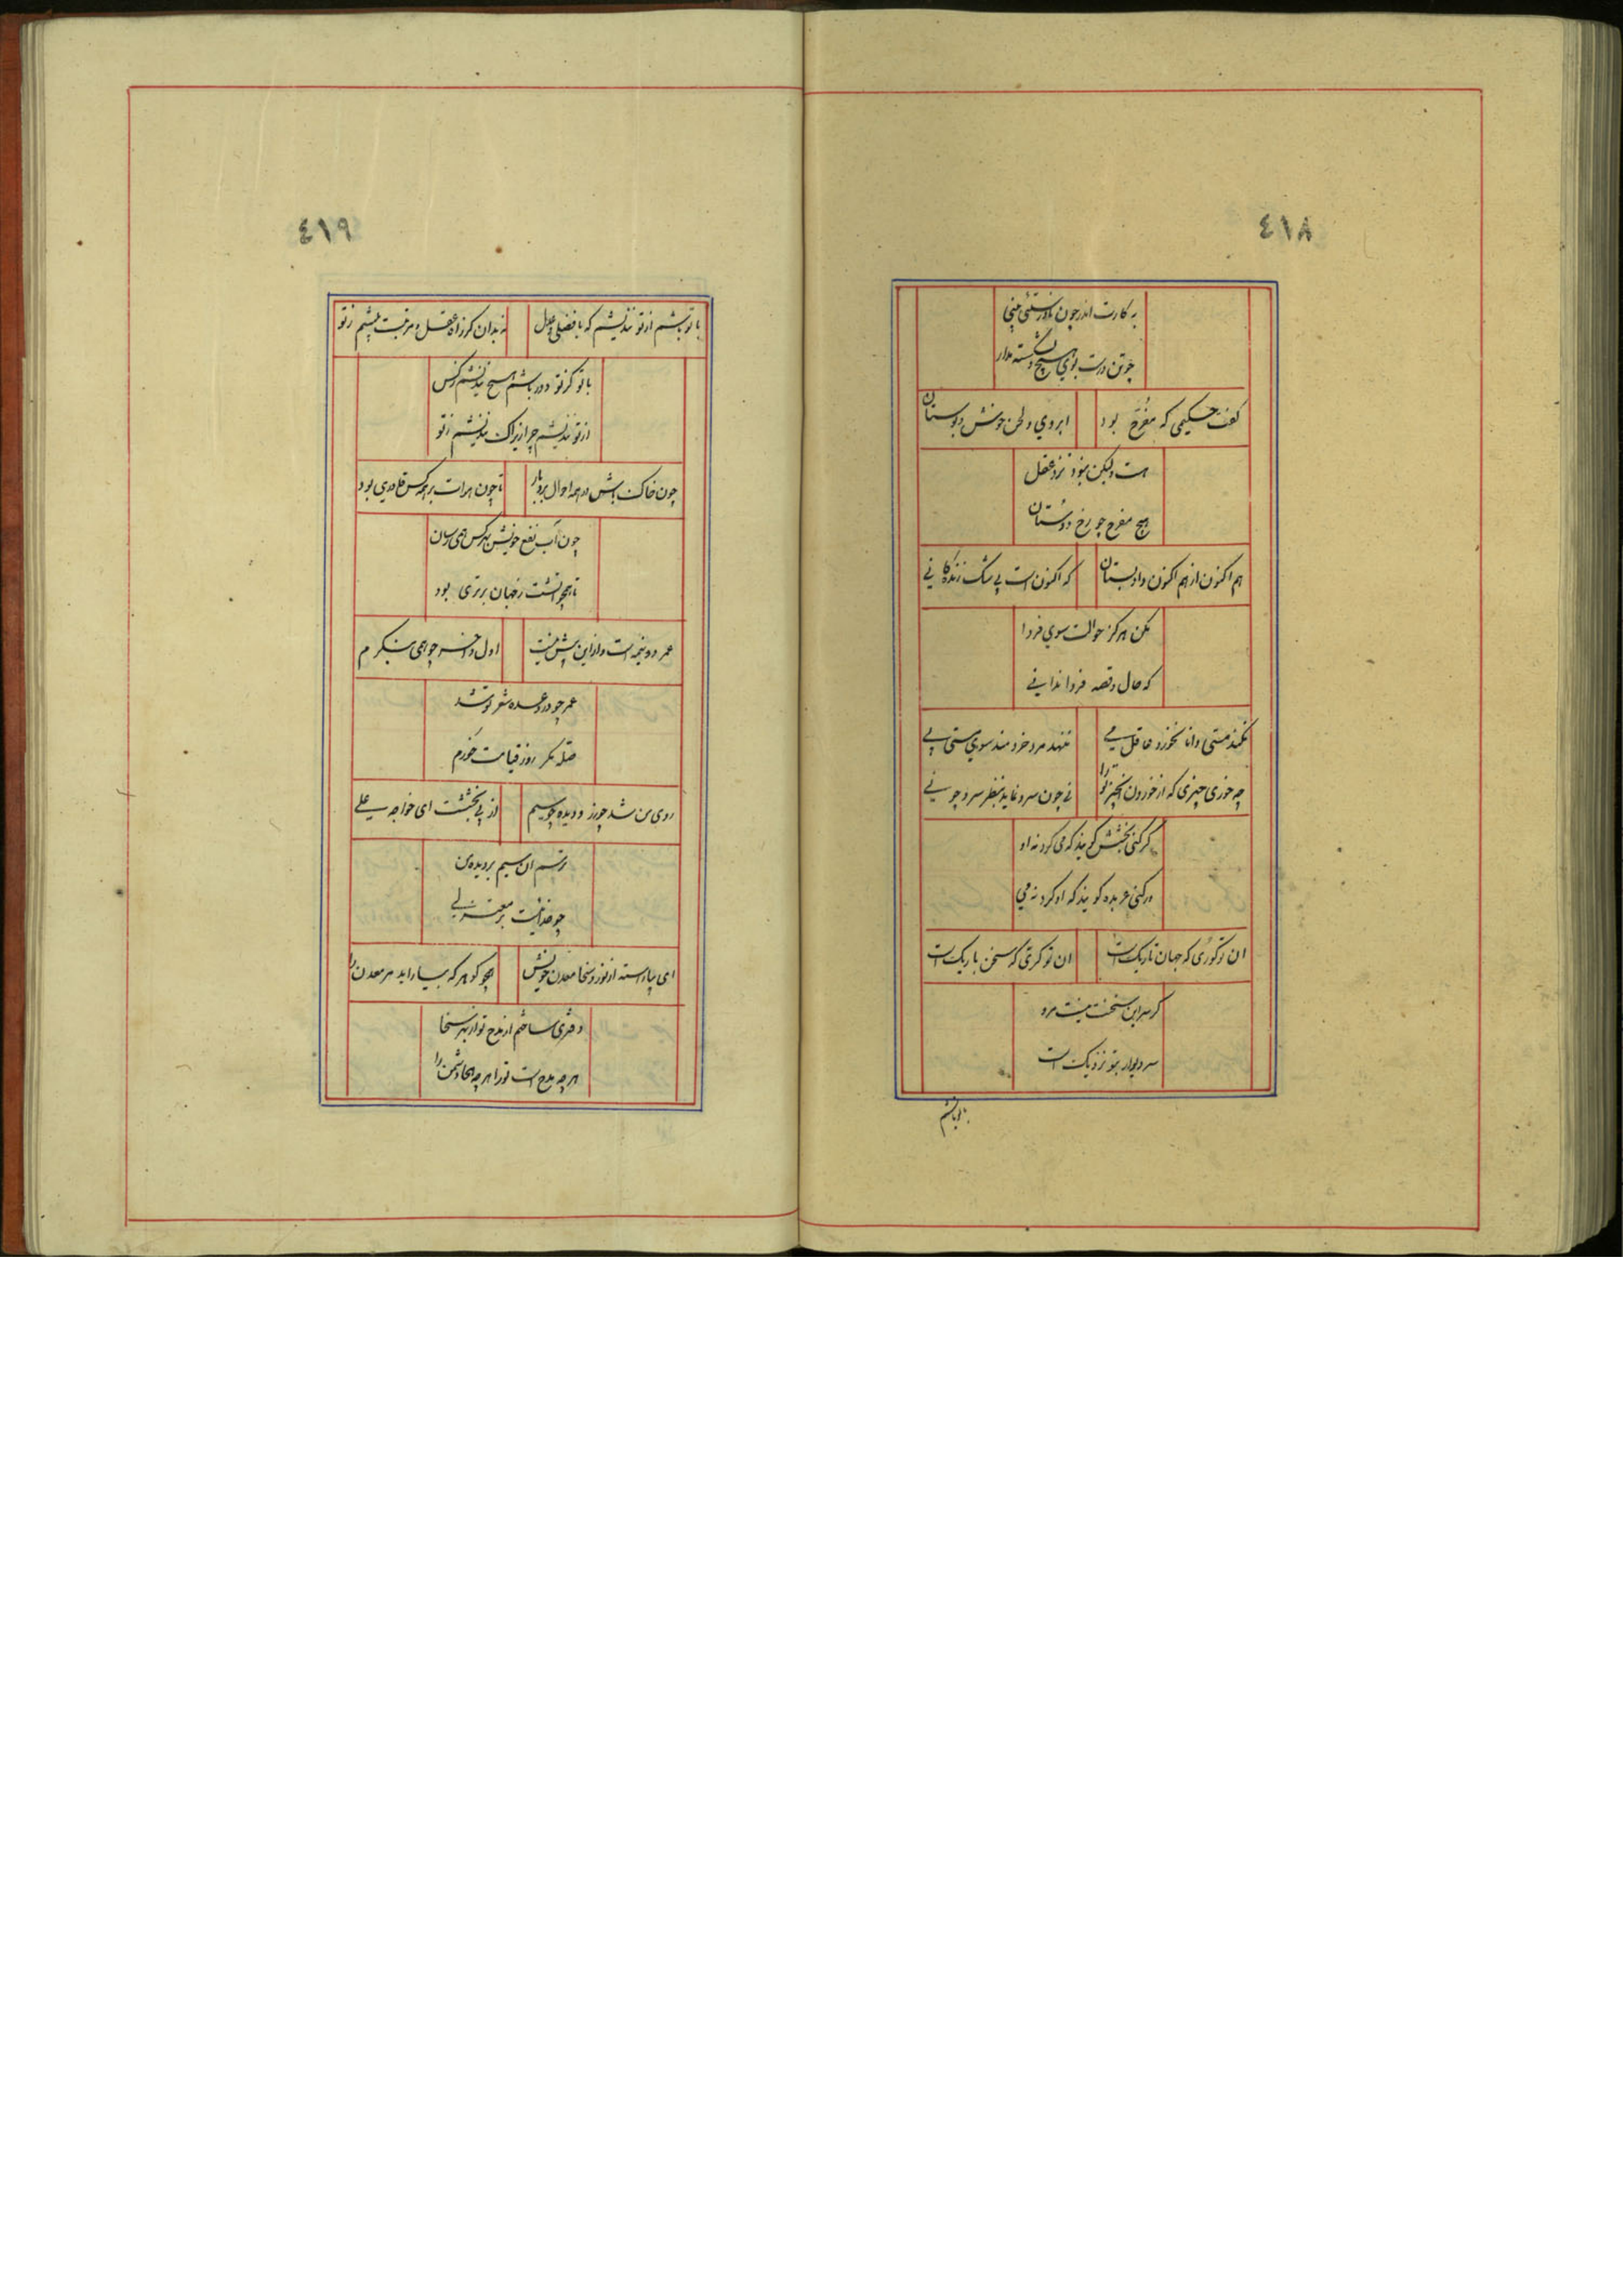 ٤١٨
به کارت اندر چون نادرستئی بینی
چو تن درست بوی هیچ دل شکسته مدار
گفت حکیمی که مفرح بود
ابروی و لحن خوش و بوستان
هست ولیکن نبود نزد عقل
هیچ مفرح چو رخ دوستان
هم اکنون از هم اکنون داد بستان
که اکنون است بی شک زندگانی
مکن هرگز حوالت سوی فردا
که حال و قصه فردا ندانی
نکند مستی دانا نخورد عاقل می
ننهد مرد خردمند سوی مستی پی
چه خوری چیزی که از خوردن آن چیز ترا
نی چون سرو نماید بنظر سرو چو نی
گر کنی بخشش گویند که می کرد نه او
ور کنی عربده گویند که او کرد نه می
ان تو کوری که جهان تاریک است
ان تو کری که سخن باریک است
گر سر این سخنت نیست مرو
سر دیوار بتو نزدیک است
با تو باشم
٤١٩
با تو باشم از تو نندیشم که با فضلی و عدل
نه بدان کز راه عقل و مرتبت بیشم ز تو
با تو کز تو دور باشم هیچ نندیشم ز کس
از تو نندیشم چرا زیراک نندیشم ز تو
چون خاک باش در همه احوال بردبار
تا چون هوات بر همه کس قادری بود
چون آب نفع خویش بهر کس همی رسان
تا همچو آتشت ز جهان برتری بود
عمر دو نیمه است و از این بیش نیست
اول و آخر چو همی بنگرم
عمر چو در وعده شعر تو شد
صله مگر روز قیامت خورم
روی من شد چو زر و دیده چو سیم
از پی بخششت ای خواجه علی
نرسد آن سیم بر دیده من
چو خدائیت بر معتزلی
ای بیاراسته از نور و سخا معدن خویش
همچو گوهر که بیاراید مر معدن را
دفتری ساختم از مدح تو از بهر سخا
هر چه مدح است تو را هر چه هجا دشمن را